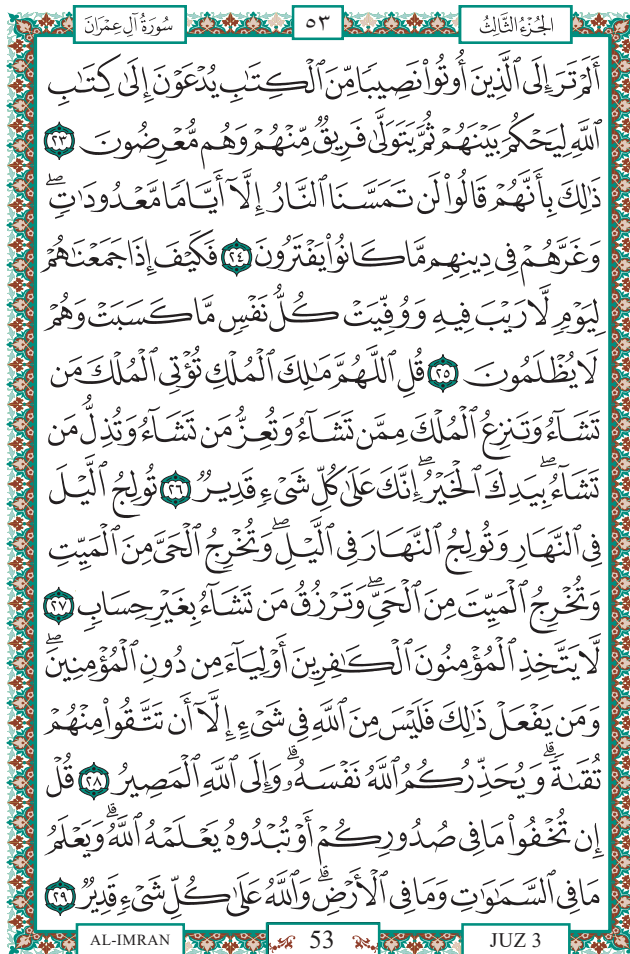 سُورَةُ آلِ عِمْرَانَ ٥٣ الجُزْءُ الثَّالِثُ
أَلَمْ تَرَ إِلَى ٱلَّذِينَ أُوتُوا۟ نَصِيبًا مِّنَ ٱلْكِتَٰبِ يُدْعَوْنَ إِلَىٰ كِتَٰبِ
ٱللَّهِ لِيَحْكُمَ بَيْنَهُمْ ثُمَّ يَتَوَلَّىٰ فَرِيقٌ مِّنْهُمْ وَهُم مُّعْرِضُونَ ٢٣
ذَٰلِكَ بِأَنَّهُمْ قَالُوا۟ لَن تَمَسَّنَا ٱلنَّارُ إِلَّآ أَيَّامًا مَّعْدُودَٰتٍ ۖ
وَغَرَّهُمْ فِى دِينِهِم مَّا كَانُوا۟ يَفْتَرُونَ ٢٤ فَكَيْفَ إِذَا جَمَعْنَٰهُمْ
لِيَوْمٍ لَّا رَيْبَ فِيهِ وَوُفِّيَتْ كُلُّ نَفْسٍ مَّا كَسَبَتْ وَهُمْ
لَا يُظْلَمُونَ ٢٥ قُلِ ٱللَّهُمَّ مَٰلِكَ ٱلْمُلْكِ تُؤْتِى ٱلْمُلْكَ مَن
تَشَآءُ وَتَنزِعُ ٱلْمُلْكَ مِمَّن تَشَآءُ وَتُعِزُّ مَن تَشَآءُ وَتُذِلُّ مَن
تَشَآءُ ۖ بِيَدِكَ ٱلْخَيْرُ ۖ إِنَّكَ عَلَىٰ كُلِّ شَىْءٍ قَدِيرٌ ٢٦ تُولِجُ ٱلَّيْلَ
فِى ٱلنَّهَارِ وَتُولِجُ ٱلنَّهَارَ فِى ٱلَّيْلِ ۖ وَتُخْرِجُ ٱلْحَىَّ مِنَ ٱلْمَيِّتِ
وَتُخْرِجُ ٱلْمَيِّتَ مِنَ ٱلْحَىِّ ۖ وَتَرْزُقُ مَن تَشَآءُ بِغَيْرِ حِسَابٍ ٢٧
لَّا يَتَّخِذِ ٱلْمُؤْمِنُونَ ٱلْكَٰفِرِينَ أَوْلِيَآءَ مِن دُونِ ٱلْمُؤْمِنِينَ ۖ
وَمَن يَفْعَلْ ذَٰلِكَ فَلَيْسَ مِنَ ٱللَّهِ فِى شَىْءٍ إِلَّآ أَن تَتَّقُوا۟ مِنْهُمْ
تُقَىٰةً ۗ وَيُحَذِّرُكُمُ ٱللَّهُ نَفْسَهُۥ ۗ وَإِلَى ٱللَّهِ ٱلْمَصِيرُ ٢٨ قُلْ
إِن تُخْفُوا۟ مَا فِى صُدُورِكُمْ أَوْ تُبْدُوهُ يَعْلَمْهُ ٱللَّهُ ۗ وَيَعْلَمُ
مَا فِى ٱلسَّمَٰوَٰتِ وَمَا فِى ٱلْأَرْضِ ۗ وَٱللَّهُ عَلَىٰ كُلِّ شَىْءٍ قَدِيرٌ ٢٩
AL-IMRAN 53 JUZ 3